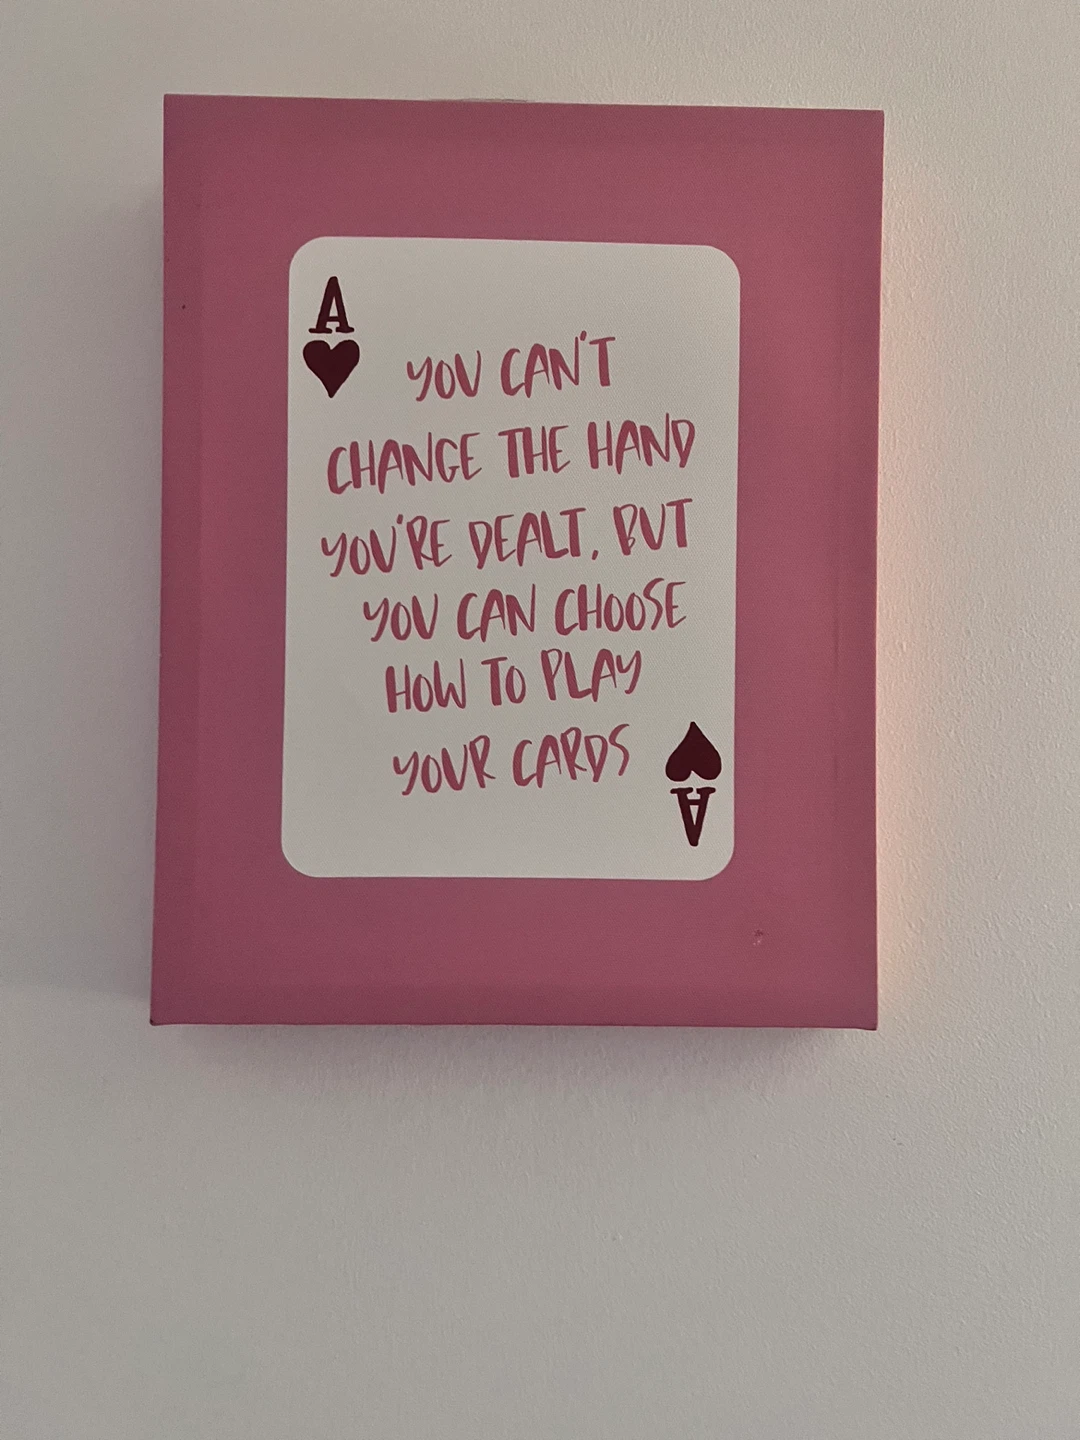 A
YOU CAN'T
CHANGE THE HAND
YOU'RE DEALT, BUT
YOU CAN CHOOSE
HOW TO PLAY
YOUR CARDS
A